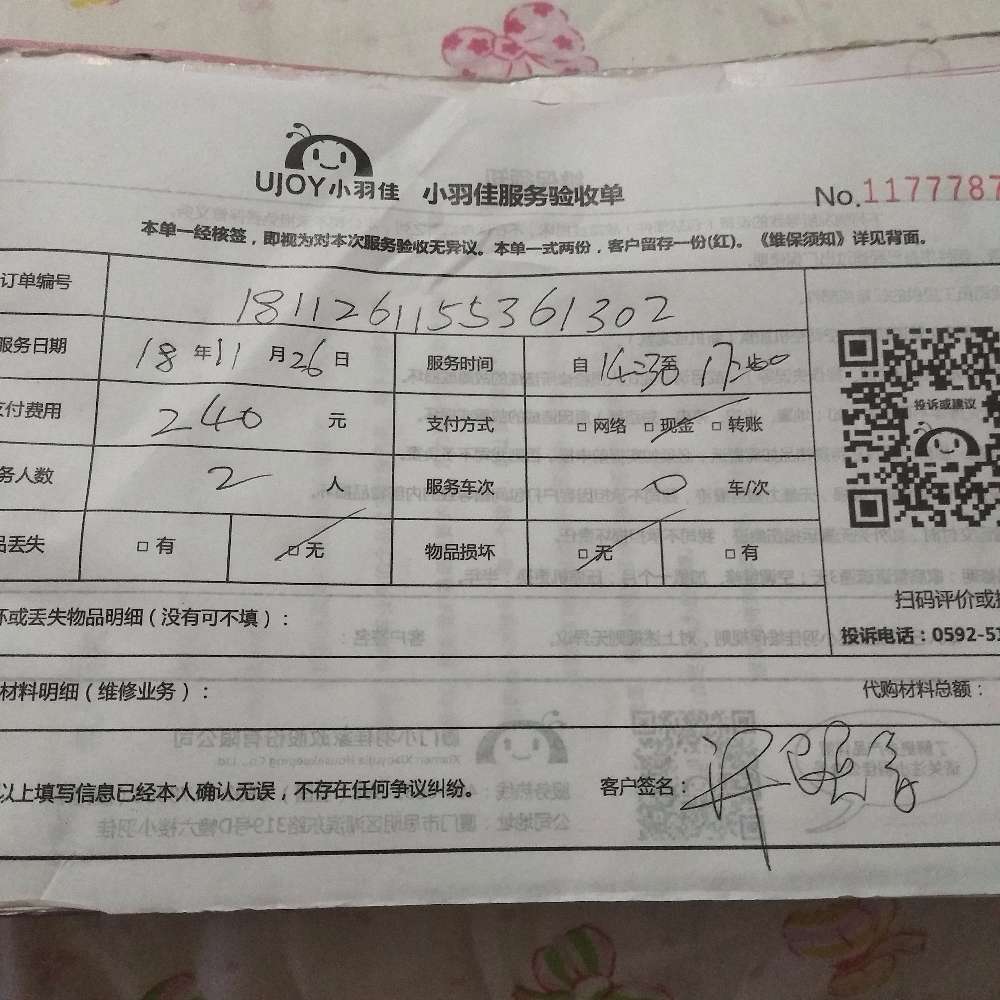 UJOY小羽佳 小羽佳服务验收单 No.1177787
本单一经核签，即视为对本次服务验收无异议。本单一式两份，客户留存一份(红)。《维保须知》详见背面。
订单编号 181126115536 1302
服务日期 18 年 11 月 26 日 服务时间 自 14:30 至
支付费用 240 元 支付方式 □ 网络 □ 现金 □ 转账
务人数 2 人 服务车次 0 车/次
品丢失 □ 有 □ 无 物品损坏 □ 无 □ 有
投诉或建议
扫码评价或
投诉电话：0592-51
坏或丢失物品明细（没有可不填）：
材料明细（维修业务）： 代购材料总额：
以上填写信息已经本人确认无误，不存在任何争议纠纷。 客户签名：